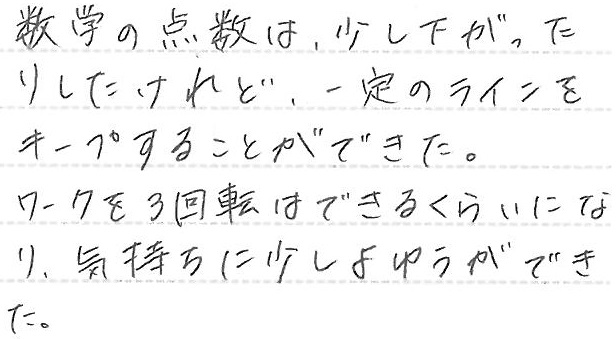 数学の点数は、少し下がった
りしたけれど、一定のラインを
キープすることができた。
ワークを3回転はできるくらいにな
り、気持ちに少しよゆうができ
た。